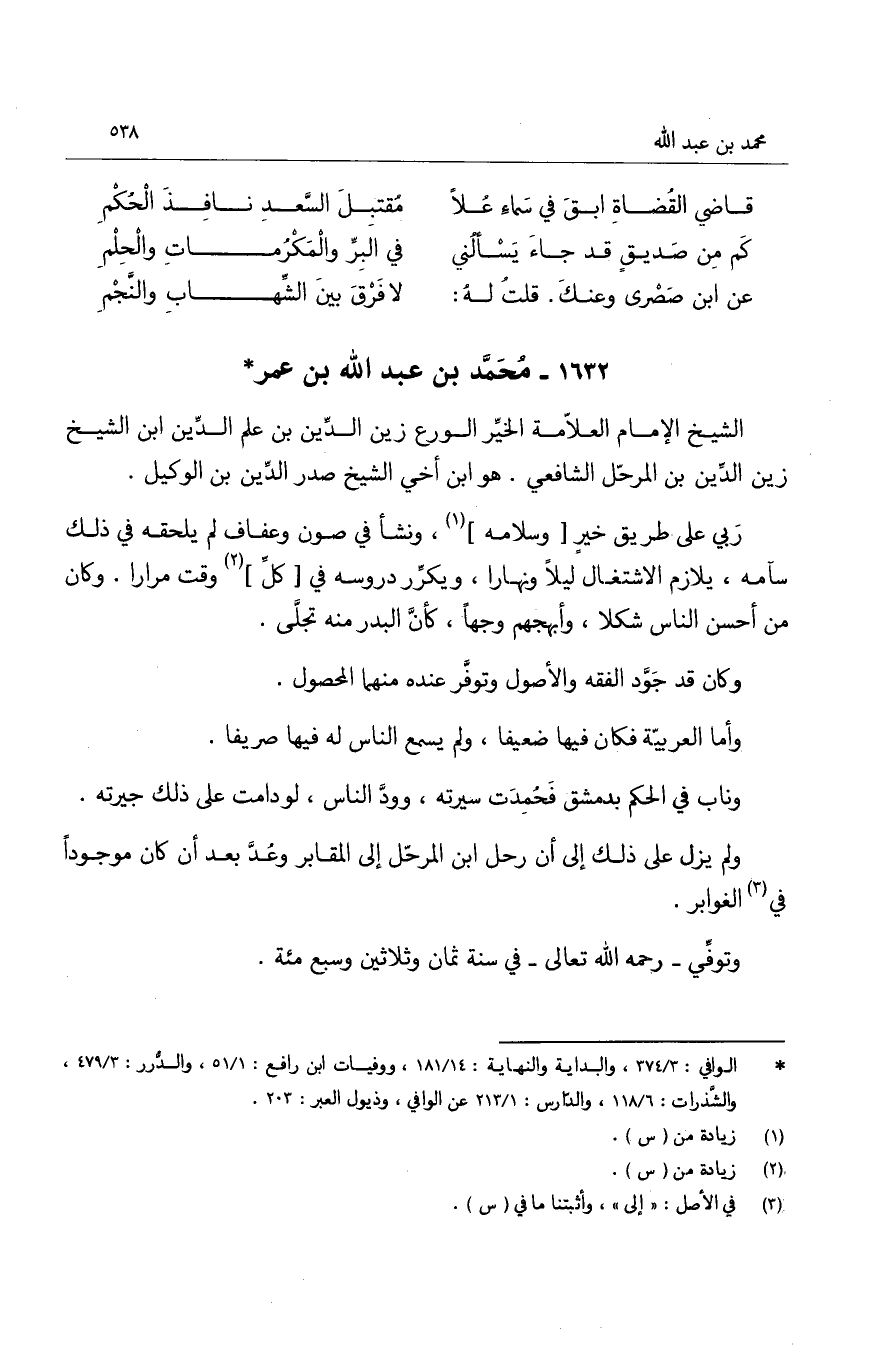 محمد بن عبد الله ٥٣٨
قاضي القُضاةِ ابقَ في سَماء عُلاً مُقتبِلَ السَّعدِ نافِذَ الْحُكْمِ
كَم مِن صَديقٍ قد جاءَ يَسْألُني في البِرِّ والْمَكْرُماتِ والْحِلْمِ
عن ابن صَصْرى وعنكَ. قلتُ لهُ: لا فَرْقَ بينَ الشِّهابِ والنَّجْمِ
١٦٣٢ ـ مُحَمَّد بن عبد الله بن عمر*
الشيخ الإمام العلاّمة الخيِّر الورع زين الدِّين بن علم الدِّين ابن الشيخ
زين الدِّين بن المرحّل الشافعي . هو ابن أخي الشيخ صدر الدِّين بن الوكيل .
رَبي على طريق خيرٍ [ وسلامه ](١) ، ونشأ في صون وعفاف لم يلحقه في ذلك
سآمه ، يلازم الاشتغال ليلاً ونهارا ، ويكرِّر دروسه في [ كلِّ ](٢) وقت مرارا . وكان
من أحسن الناس شكلا ، وأبهجهم وجهاً ، كأنَّ البدر منه تجلَّى .
وكان قد جَوَّد الفقه والأصول وتوفَّر عنده منهما المحصول .
وأما العربيّة فكان فيها ضعيفا ، ولم يسمع الناس له فيها صريفا .
وناب في الحكم بدمشق فَحُمِدَت سيرته ، وودَّ الناس ، لو دامت على ذلك جيرته .
ولم يزل على ذلك إلى أن رحل ابن المرحّل إلى المقابر وعُدَّ بعد أن كان موجوداً
في(٣) الغوابر .
وتوفِّي ـ رحمه الله تعالى ـ في سنة ثمان وثلاثين وسبع مئة .
* الوافي : ٣٧٤/٣ ، والبداية والنهاية : ١٨١/١٤ ، ووفيات ابن رافع : ٥١/١ ، والدُّرر : ٤٧٩/٣ ،
والشَّذرات : ١١٨/٦ ، والدّارس : ٢١٣/١ عن الوافي ، وذيول العبر : ٢٠٣ .
(١) زيادة من ( س ) .
(٢) زيادة من ( س ) .
(٣) في الأصل : « إلى » ، وأثبتنا ما في ( س ) .